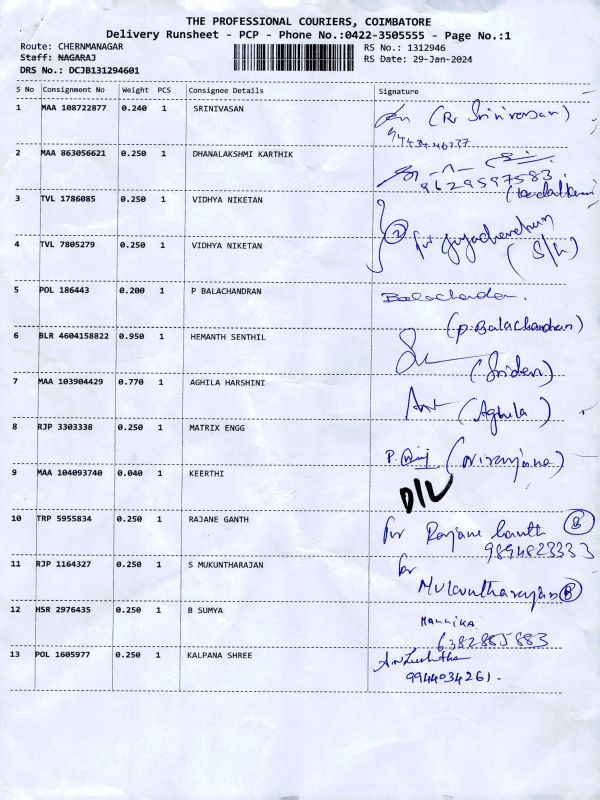 THE PROFESSIONAL COURIERS, COIMBATORE
Delivery Runsheet - PCP - Phone No.:0422-3505555 - Page No.:1
Route: CHERNMANAGAR RS No.: 1312946
Staff: NAGARAJ RS Date: 29-Jan-2024
DRS No.: DCJB131294601
S No Consignment No Weight PCS Consignee Details Signature
1 MAA 108722877 0.240 1 SRINIVASAN (R. Srinivasan)
2 MAA 863056621 0.250 1 DHANALAKSHMI KARTHIK
9629597583
3 TVL 1786085 0.250 1 VIDHYA NIKETAN
2 for
4 TVL 7805279 0.250 1 VIDHYA NIKETAN
5 POL 186443 0.200 1 P BALACHANDRAN Balachandan.
(P. Balachandran)
6 BLR 4604158822 0.950 1 HEMANTH SENTHIL
(Sridevi)
7 MAA 103904429 0.770 1 AGHILA HARSHINI (Aghila)
8 RJP 3303338 0.250 1 MATRIX ENGG P. (Niranjana)
9 MAA 104093740 0.040 1 KEERTHI D/L
10 TRP 5955834 0.250 1 RAJANE GANTH for Rajane Ganth B
9894823333
11 RJP 1164327 0.250 1 S MUKUNTHARAJAN for
Mukuntharajan B
12 HSR 2976435 0.250 1 B SUMYA MALLIKA
6382885883
13 POL 1605977 0.250 1 KALPANA SHREE
9944034261.